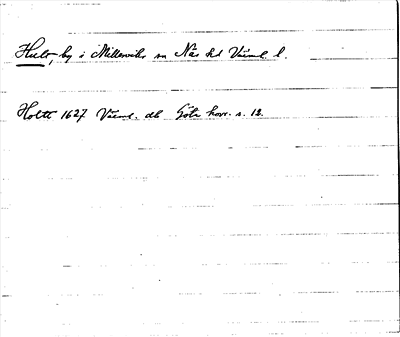 Hult, by i Millesviks sn Näs hd Värml. l.
Holtt 1627 Värml. db Göta hovr. s. 12.